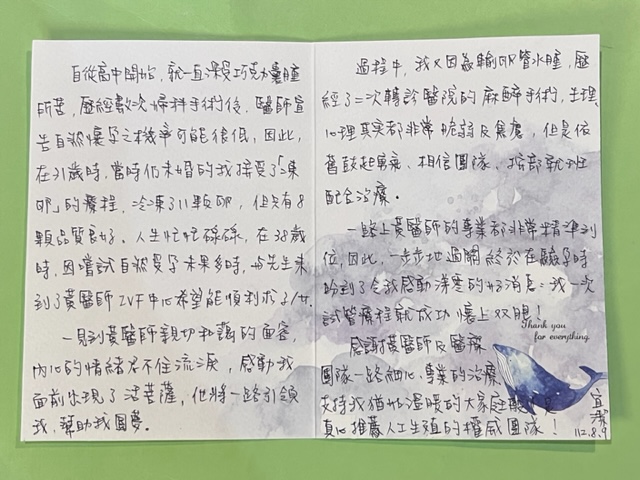 自從高中開始,就一直深受巧克力囊腫
所苦,歷經數次婦科手術後,醫師宣
告自然懷孕之機率可能很低,因此,
在31歲時,當時仍未婚的我接受了「凍
卵」的療程,冷凍了11顆卵,但只有8
顆品質良好。人生忙忙碌碌,在38歲
時,因嘗試自然受孕未果多時,與先生來
到了黃醫師IVF中心希望能順利求子/女.
一見到黃醫師親切和藹的面容,
內心的情緒忍不住流淚,感動我
面前出現了活菩薩,他將一路引領
我、幫助我圓夢。
過程中,我又因為輸卵管水腫,歷
經了二次轉診醫院的麻醉手術,生理、
心理真實都非常脆弱及焦慮,但是依
舊鼓起勇氣、相信團隊、按部就班
配合治療。
一路上黃醫師的專業都非常精準到
位,因此,一步步地過關終於在驗孕時
盼到了令我感動落淚的好消息:我一次
試管療程就成功懷上双胞!
Thank you
for everything.
感謝黃醫師及醫療
團隊一路細心、專業的治療,
支持我猶如溫暖的大家庭
真心推薦人工生殖的權威團隊!
宜潔
112.8.9